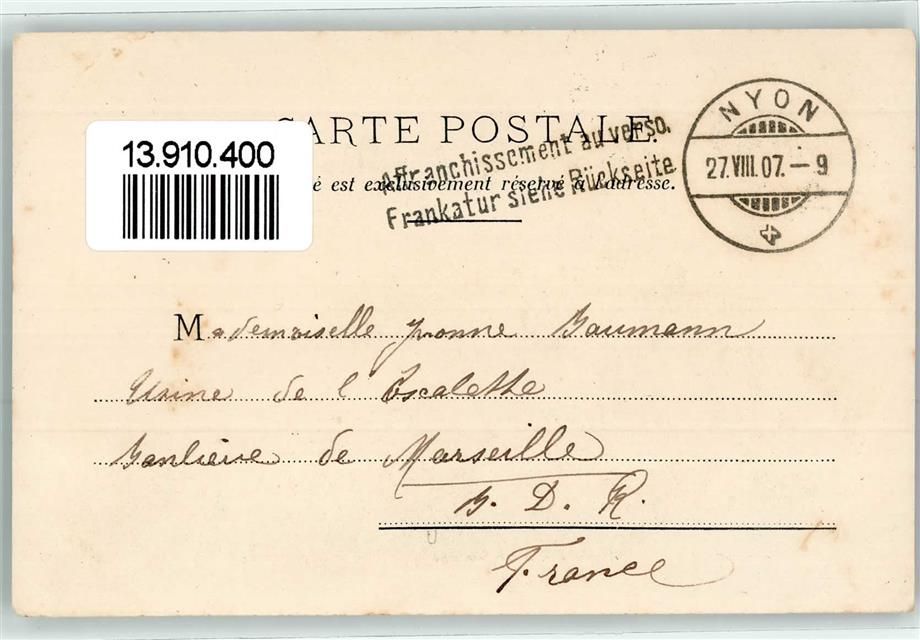 CARTE POSTALE.
13.910.400
NYON
27.VIII.07.–9
Affranchissement au verso.
é est exclusivement réservé à l'adresse.
Frankatur siehe Rückseite
Mademoiselle Yvonne Baumann
Usine de l'Escalette
Banlieue de Marseille
B. D. R.
France